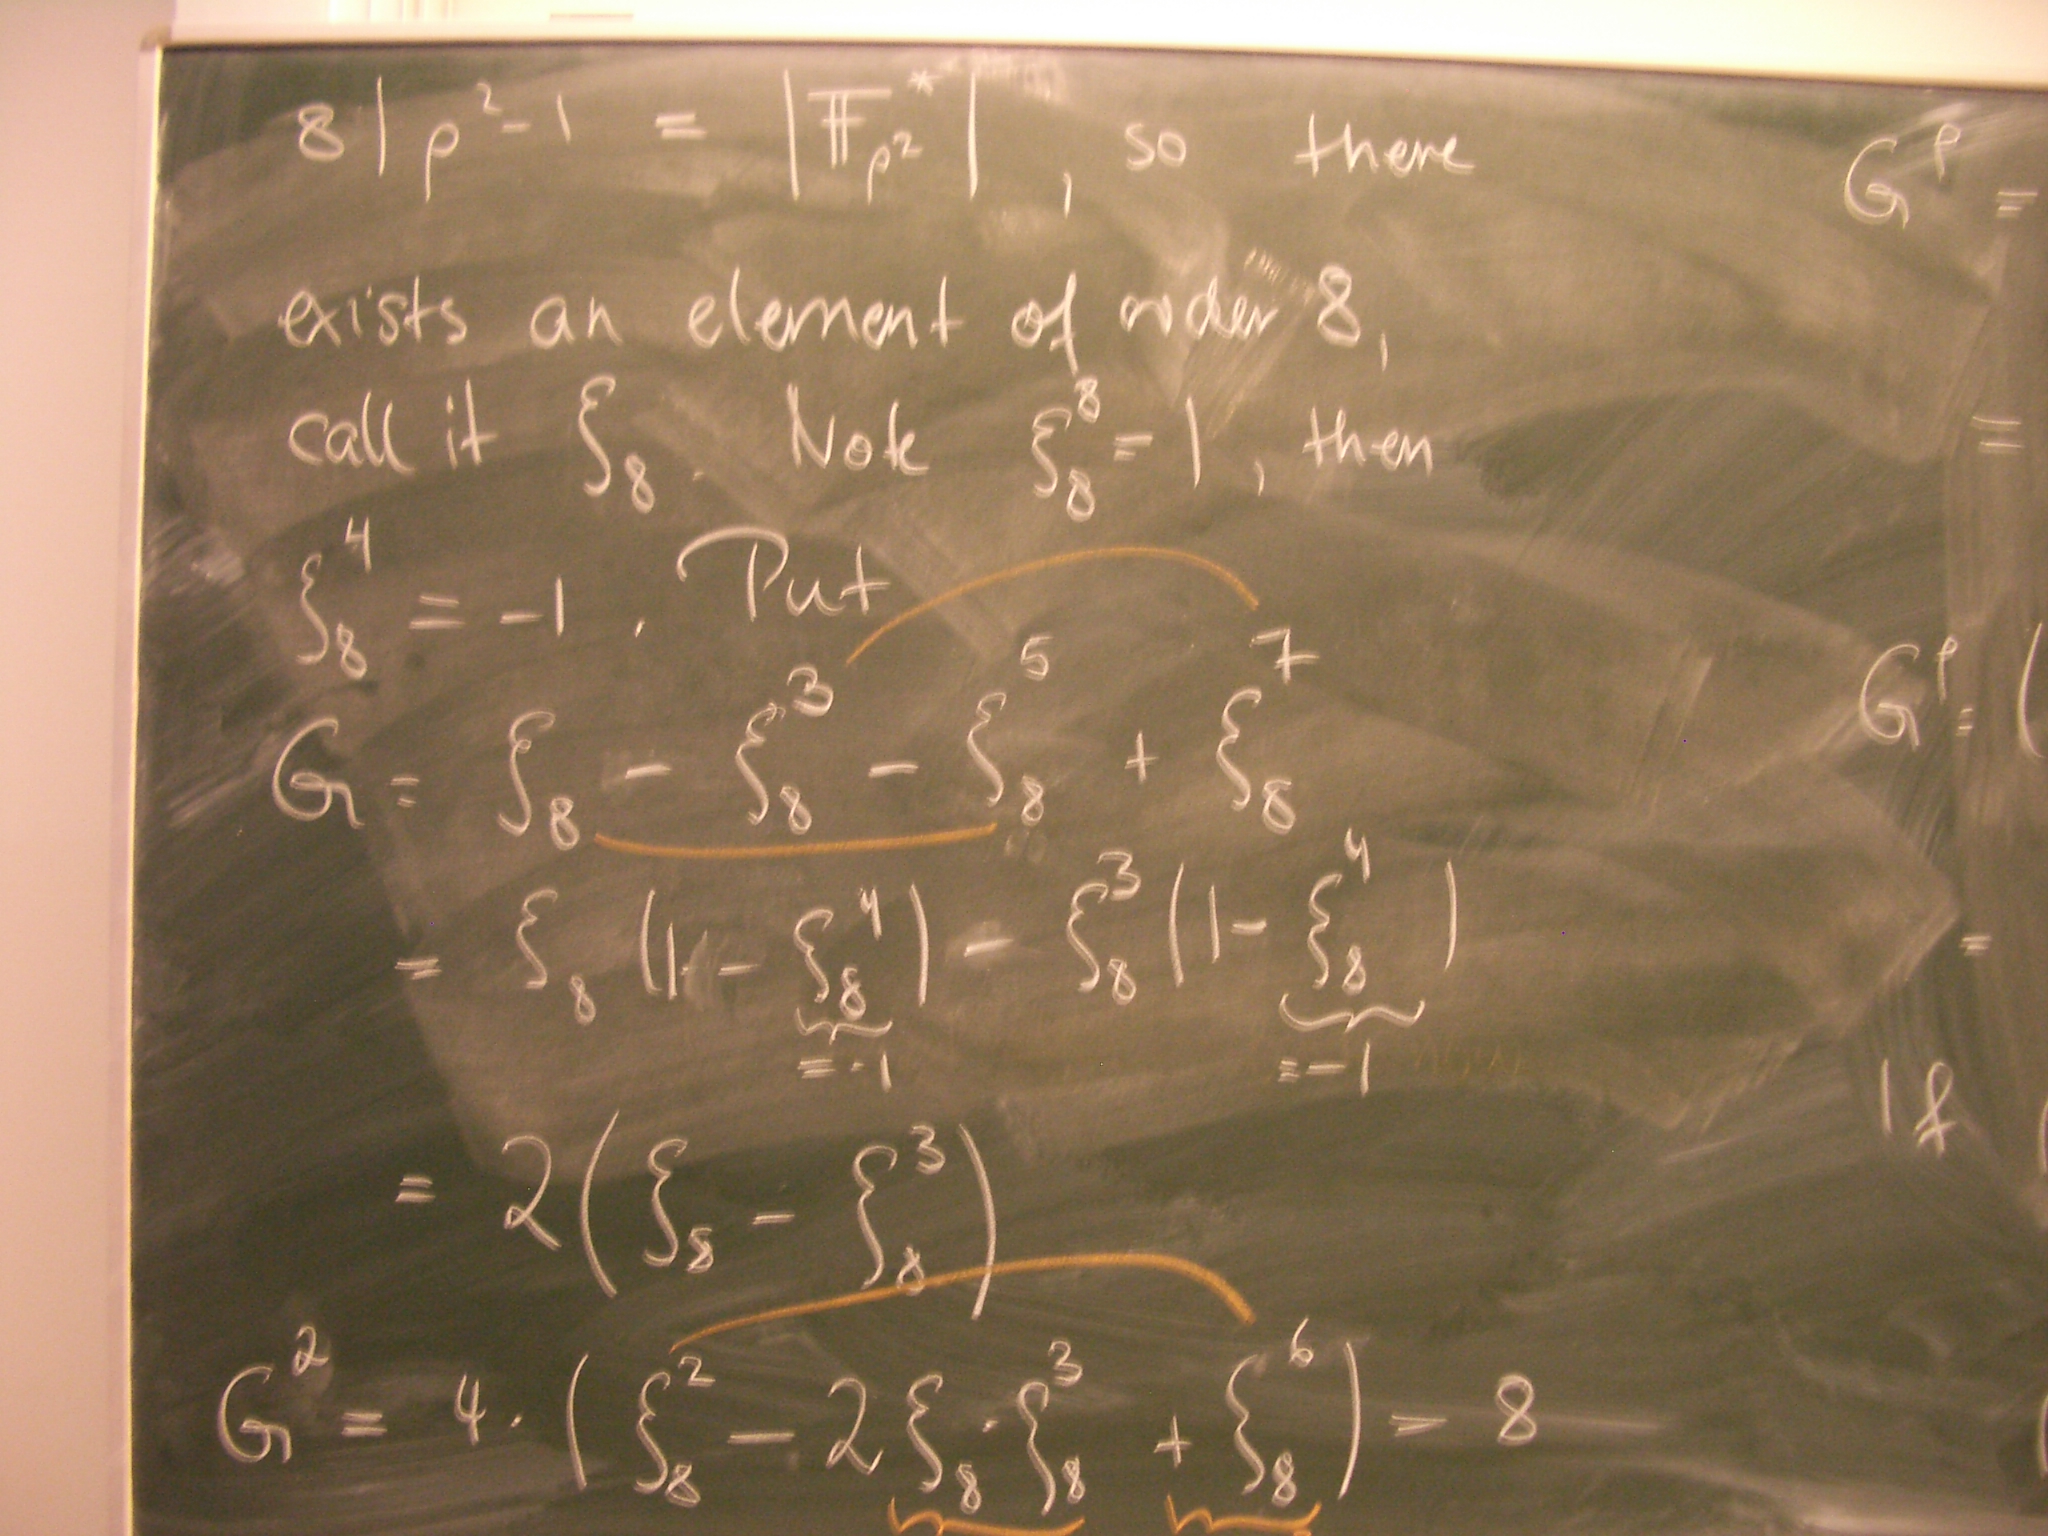 8 | p² - 1 = |𝔽*_{p²}|, so there
exists an element of order 8,
call it ξ₈. Note ξ₈⁸ = 1, then
ξ₈⁴ = -1. Put
G = ξ₈ - ξ₈³ - ξ₈⁵ + ξ₈⁷
= ξ₈ (1 - ξ₈⁴) - ξ₈³ (1 - ξ₈⁴)
= -1 = -1
= 2(ξ₈ - ξ₈³)
G² = 4 · (ξ₈² - 2 ξ₈ · ξ₈³ + ξ₈⁶) = 8
Gᵖ =
=
Gᵖ = (
=
If (